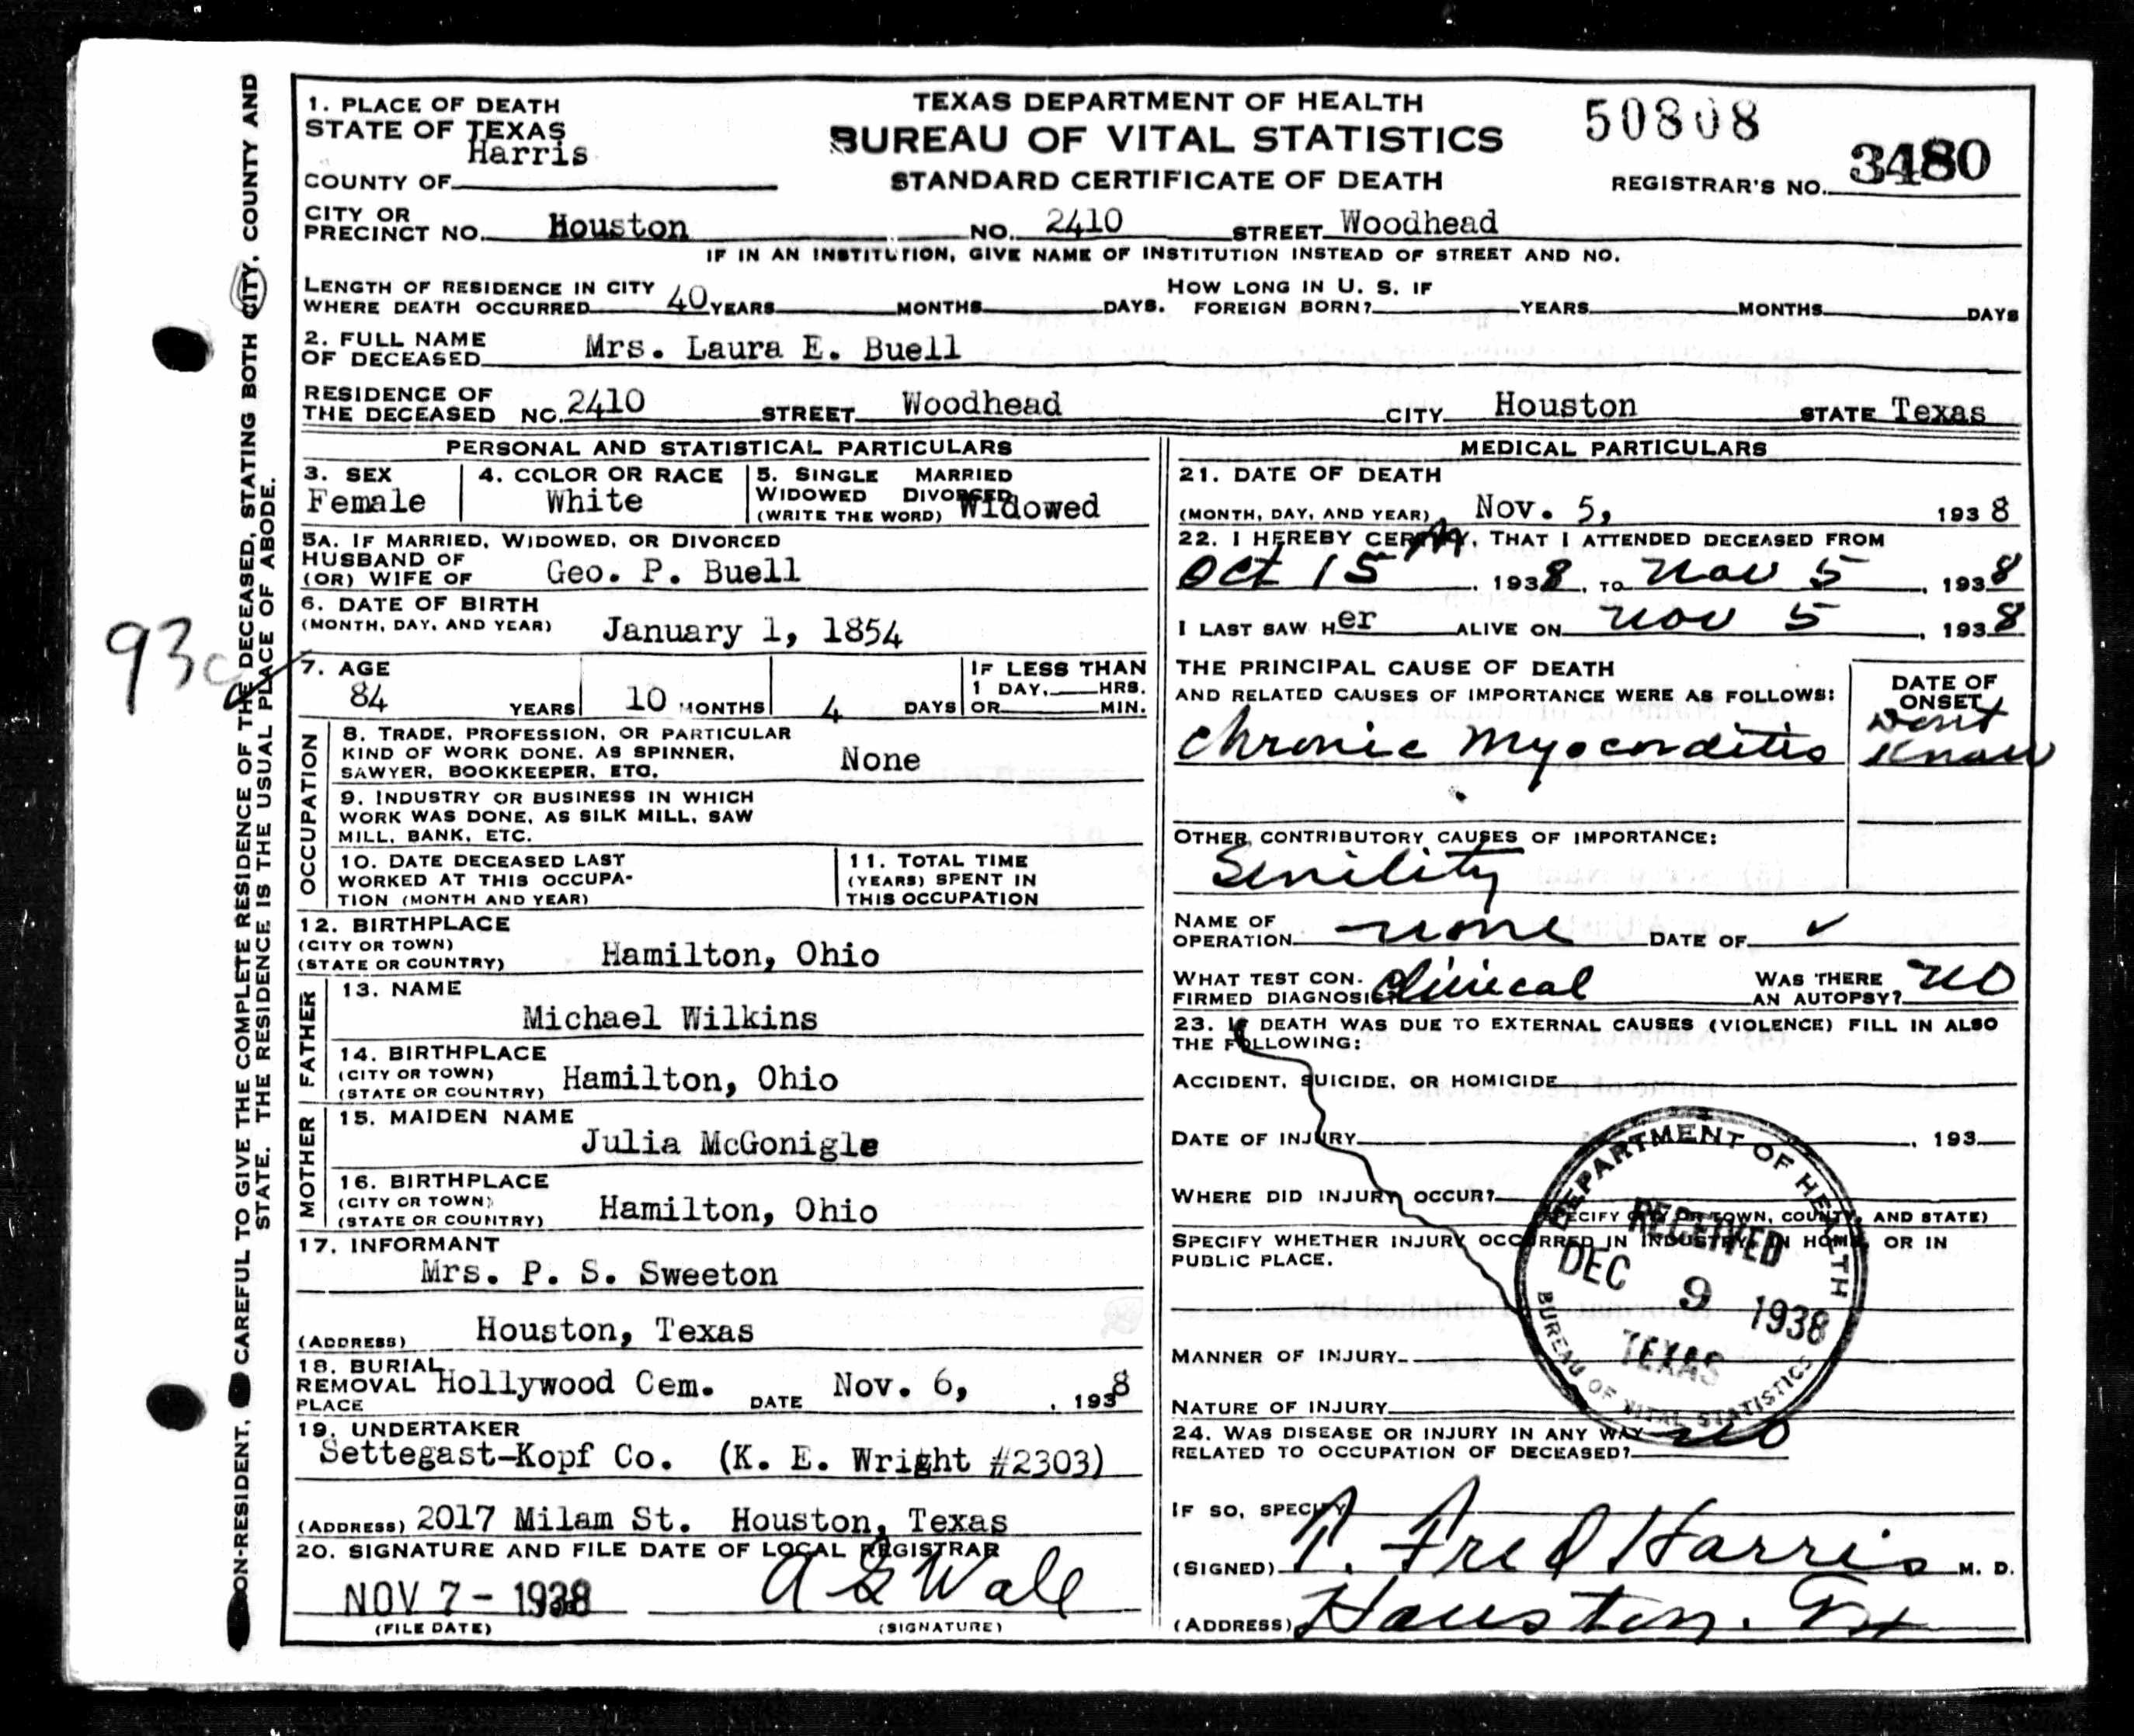 1. PLACE OF DEATH
STATE OF TEXAS
COUNTY OF Harris
TEXAS DEPARTMENT OF HEALTH
BUREAU OF VITAL STATISTICS
STANDARD CERTIFICATE OF DEATH
50808
REGISTRAR'S NO. 3480
CITY OR
PRECINCT NO. Houston NO. 2410 STREET Woodhead
IF IN AN INSTITUTION, GIVE NAME OF INSTITUTION INSTEAD OF STREET AND NO.
LENGTH OF RESIDENCE IN CITY
WHERE DEATH OCCURRED 40 YEARS MONTHS DAYS.
HOW LONG IN U. S. IF
FOREIGN BORN? YEARS MONTHS DAYS
2. FULL NAME
OF DECEASED Mrs. Laura E. Buell
RESIDENCE OF
THE DECEASED NO. 2410 STREET Woodhead CITY Houston STATE Texas
PERSONAL AND STATISTICAL PARTICULARS
3. SEX
Female
4. COLOR OR RACE
White
5. SINGLE MARRIED
WIDOWED DIVORCED
(WRITE THE WORD) Widowed
5A. IF MARRIED, WIDOWED, OR DIVORCED
HUSBAND OF
(OR) WIFE OF Geo. P. Buell
6. DATE OF BIRTH
(MONTH, DAY, AND YEAR) January 1, 1854
7. AGE
84 YEARS 10 MONTHS 4 DAYS
IF LESS THAN
1 DAY, HRS.
OR MIN.
OCCUPATION
8. TRADE, PROFESSION, OR PARTICULAR
KIND OF WORK DONE, AS SPINNER,
SAWYER, BOOKKEEPER, ETC. None
9. INDUSTRY OR BUSINESS IN WHICH
WORK WAS DONE, AS SILK MILL, SAW
MILL, BANK, ETC.
10. DATE DECEASED LAST
WORKED AT THIS OCCUPA-
TION (MONTH AND YEAR)
11. TOTAL TIME
(YEARS) SPENT IN
THIS OCCUPATION
12. BIRTHPLACE
(CITY OR TOWN)
(STATE OR COUNTRY) Hamilton, Ohio
FATHER
13. NAME
Michael Wilkins
14. BIRTHPLACE
(CITY OR TOWN)
(STATE OR COUNTRY) Hamilton, Ohio
MOTHER
15. MAIDEN NAME
Julia McGonigle
16. BIRTHPLACE
(CITY OR TOWN)
(STATE OR COUNTRY) Hamilton, Ohio
17. INFORMANT
Mrs. P. S. Sweeton
(ADDRESS) Houston, Texas
18. BURIAL
REMOVAL Hollywood Cem. DATE Nov. 6, , 1938
PLACE
19. UNDERTAKER
Settegast-Kopf Co. (K. E. Wright #2303)
(ADDRESS) 2017 Milam St. Houston, Texas
20. SIGNATURE AND FILE DATE OF LOCAL REGISTRAR
NOV 7 - 1938
(FILE DATE) (SIGNATURE)
MEDICAL PARTICULARS
21. DATE OF DEATH
(MONTH, DAY, AND YEAR) Nov. 5, 1938
22. I HEREBY CERTIFY, THAT I ATTENDED DECEASED FROM
Oct 15, 1938, TO Nov 5, 1938
I LAST SAW Her ALIVE ON Nov 5, 1938
THE PRINCIPAL CAUSE OF DEATH
AND RELATED CAUSES OF IMPORTANCE WERE AS FOLLOWS:
Chronic Myocarditis
DATE OF
ONSET
Dont
Know
OTHER CONTRIBUTORY CAUSES OF IMPORTANCE:
Senility
NAME OF
OPERATION none DATE OF ✓
WHAT TEST CON-
FIRMED DIAGNOSIS Clinical
WAS THERE
AN AUTOPSY? no
23. IF DEATH WAS DUE TO EXTERNAL CAUSES (VIOLENCE) FILL IN ALSO
THE FOLLOWING:
ACCIDENT, SUICIDE, OR HOMICIDE
DATE OF INJURY , 193
WHERE DID INJURY OCCUR?
(SPECIFY CITY OR TOWN, COUNTY, AND STATE)
SPECIFY WHETHER INJURY OCCURRED IN INDUSTRY, IN HOME, OR IN
PUBLIC PLACE.
MANNER OF INJURY
NATURE OF INJURY
24. WAS DISEASE OR INJURY IN ANY WAY
RELATED TO OCCUPATION OF DECEASED? no
IF SO, SPECIFY
(SIGNED) Fred Harris M. D.
(ADDRESS) Houston. Tx
DEPARTMENT OF HEALTH
RECEIVED
DEC 9 1938
TEXAS
BUREAU OF VITAL STATISTICS
ON-RESIDENT, CAREFUL TO GIVE THE COMPLETE RESIDENCE OF THE DECEASED, STATING BOTH CITY, COUNTY AND
STATE. THE RESIDENCE IS THE USUAL PLACE OF ABODE.
93c